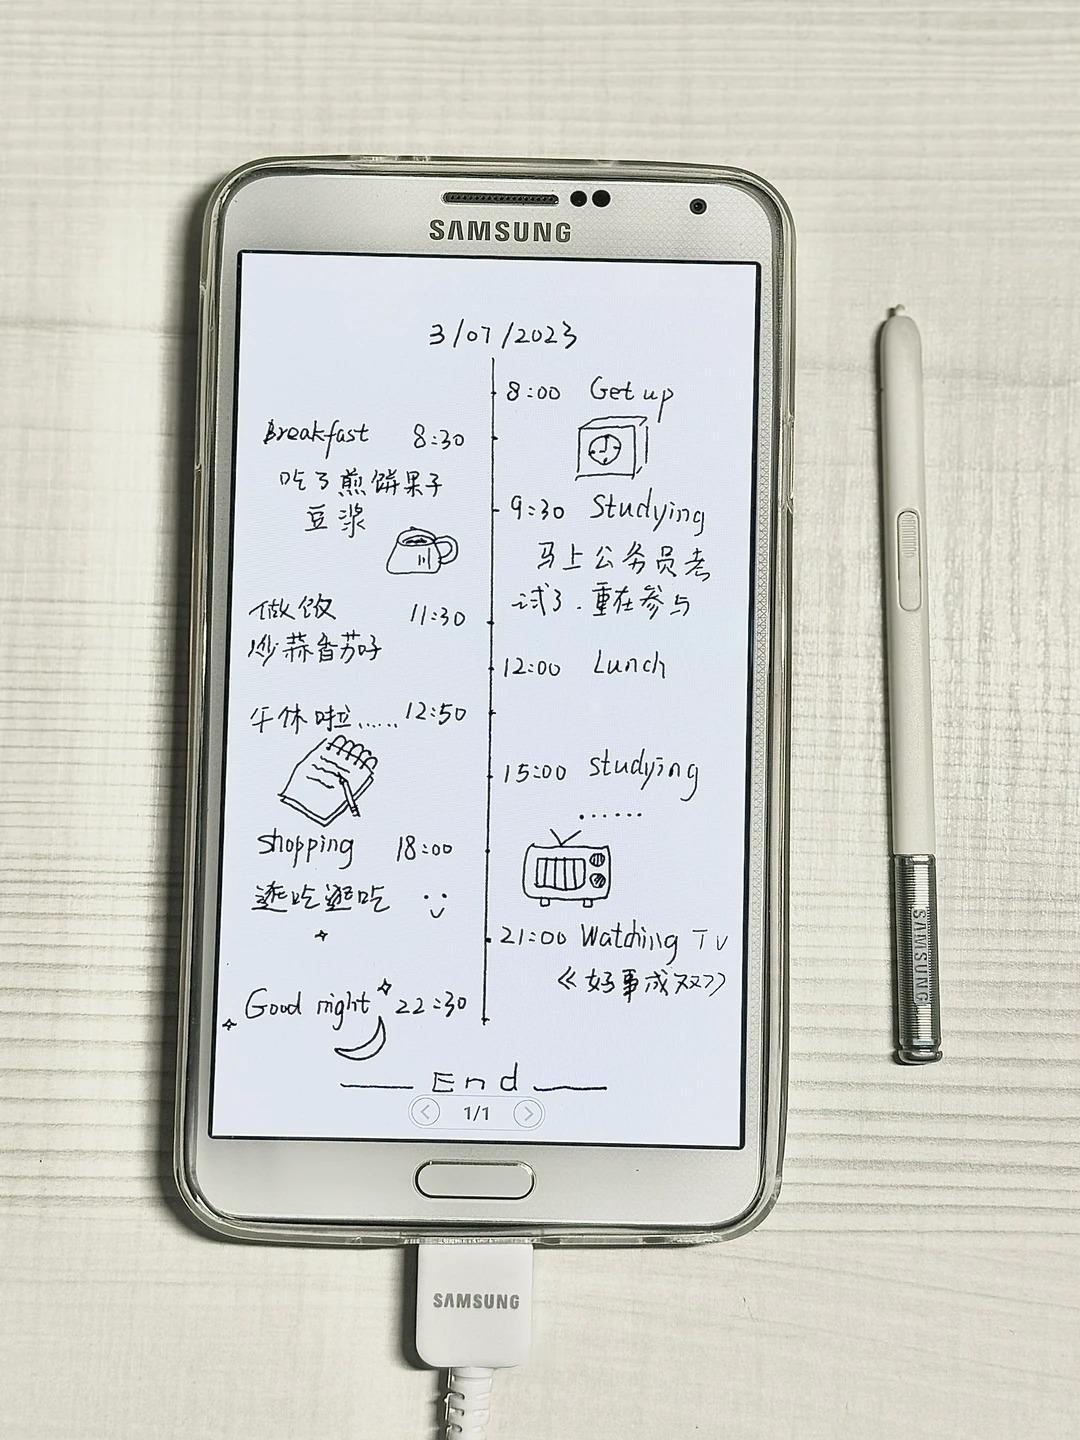 SAMSUNG
3/07/2023
8:00 Get up
Breakfast 8:30
吃了煎饼果子
豆浆
9:30 Studying
马上公务员考
试了.重在参与
做饭 11:30
炒蒜香茄子
12:00 Lunch
午休啦...... 12:50
15:00 studying
......
shopping 18:00
逛吃逛吃
21:00 Watching TV
《好事成双》
Good night 22:30
End
1/1
SAMSUNG
SAMSUNG